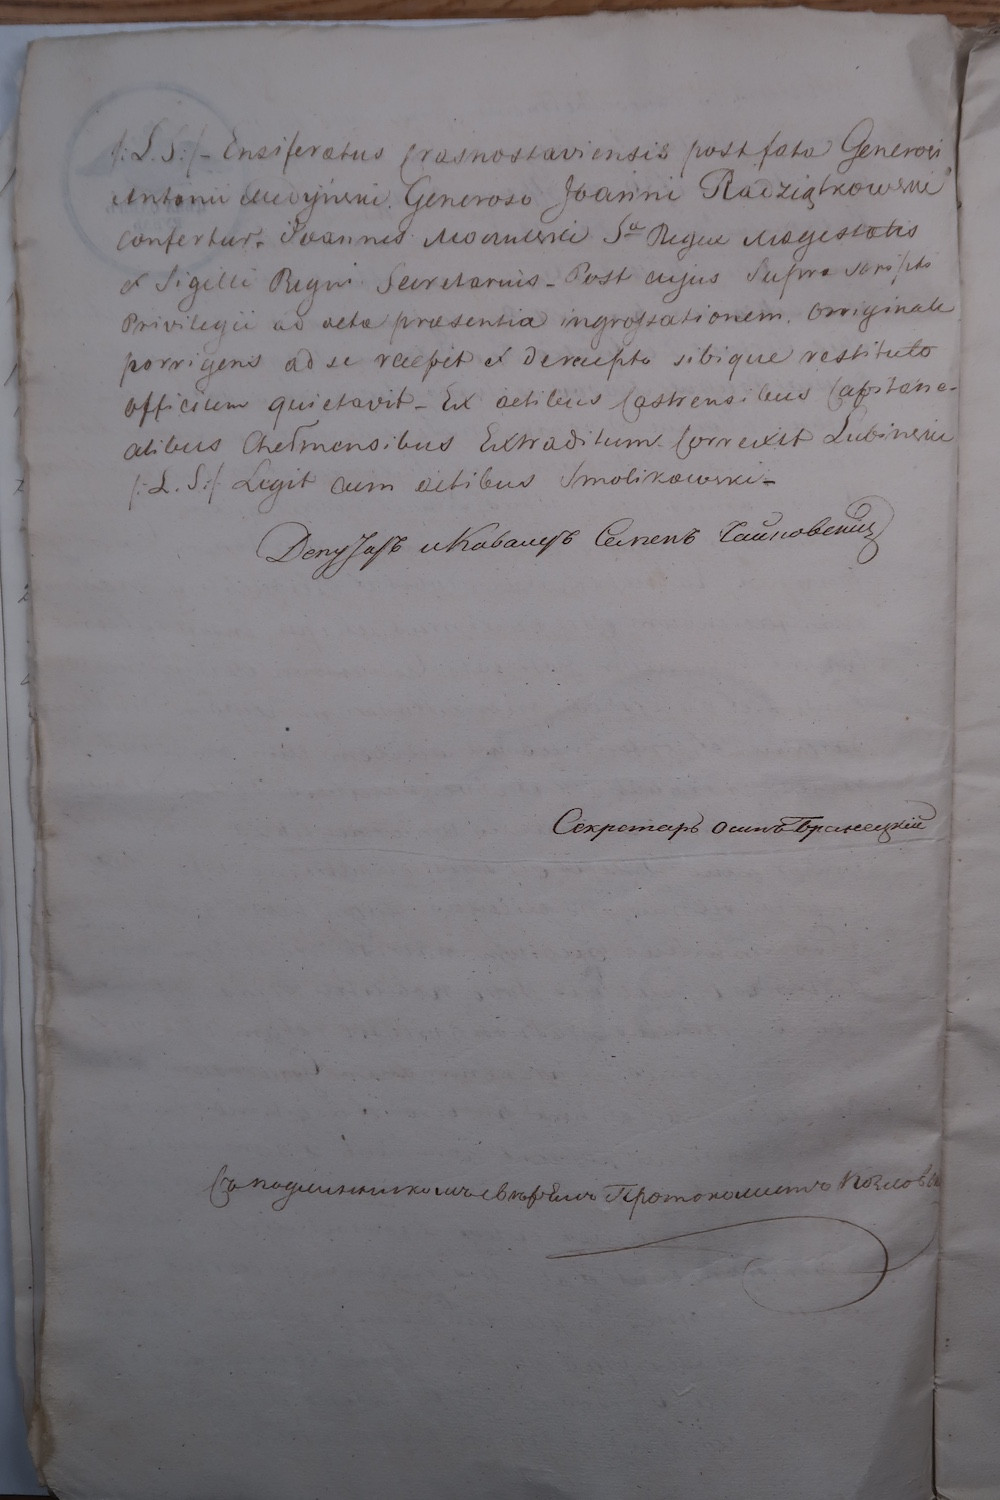 /: L. S: /- Ensiferatus Crasnostaviensis post fata Generosi
Antonii Medyński. Generoso Joanni Radziątkowski
confertur. Joannes Mocarski S-ae Regiae Magestatis
et Sigilli Regni Secretarius - Post cujus Supra scripti
Privilegii ad acta praesentia ingrossationem. originale
porrigens ad se recepit et de recepto sibique restituto
officium quietavit - Ex actibus Castrensibus Capitane-
alibus Chełmensibus Extraditum. Correxit Lubinski
/: L. S: / Legit cum actibus Smolikowski -
Депутатъ и Кавалеръ Семенъ
Секретарь Осипъ
Съ подлинникомъ сверялъ Протоколистъ